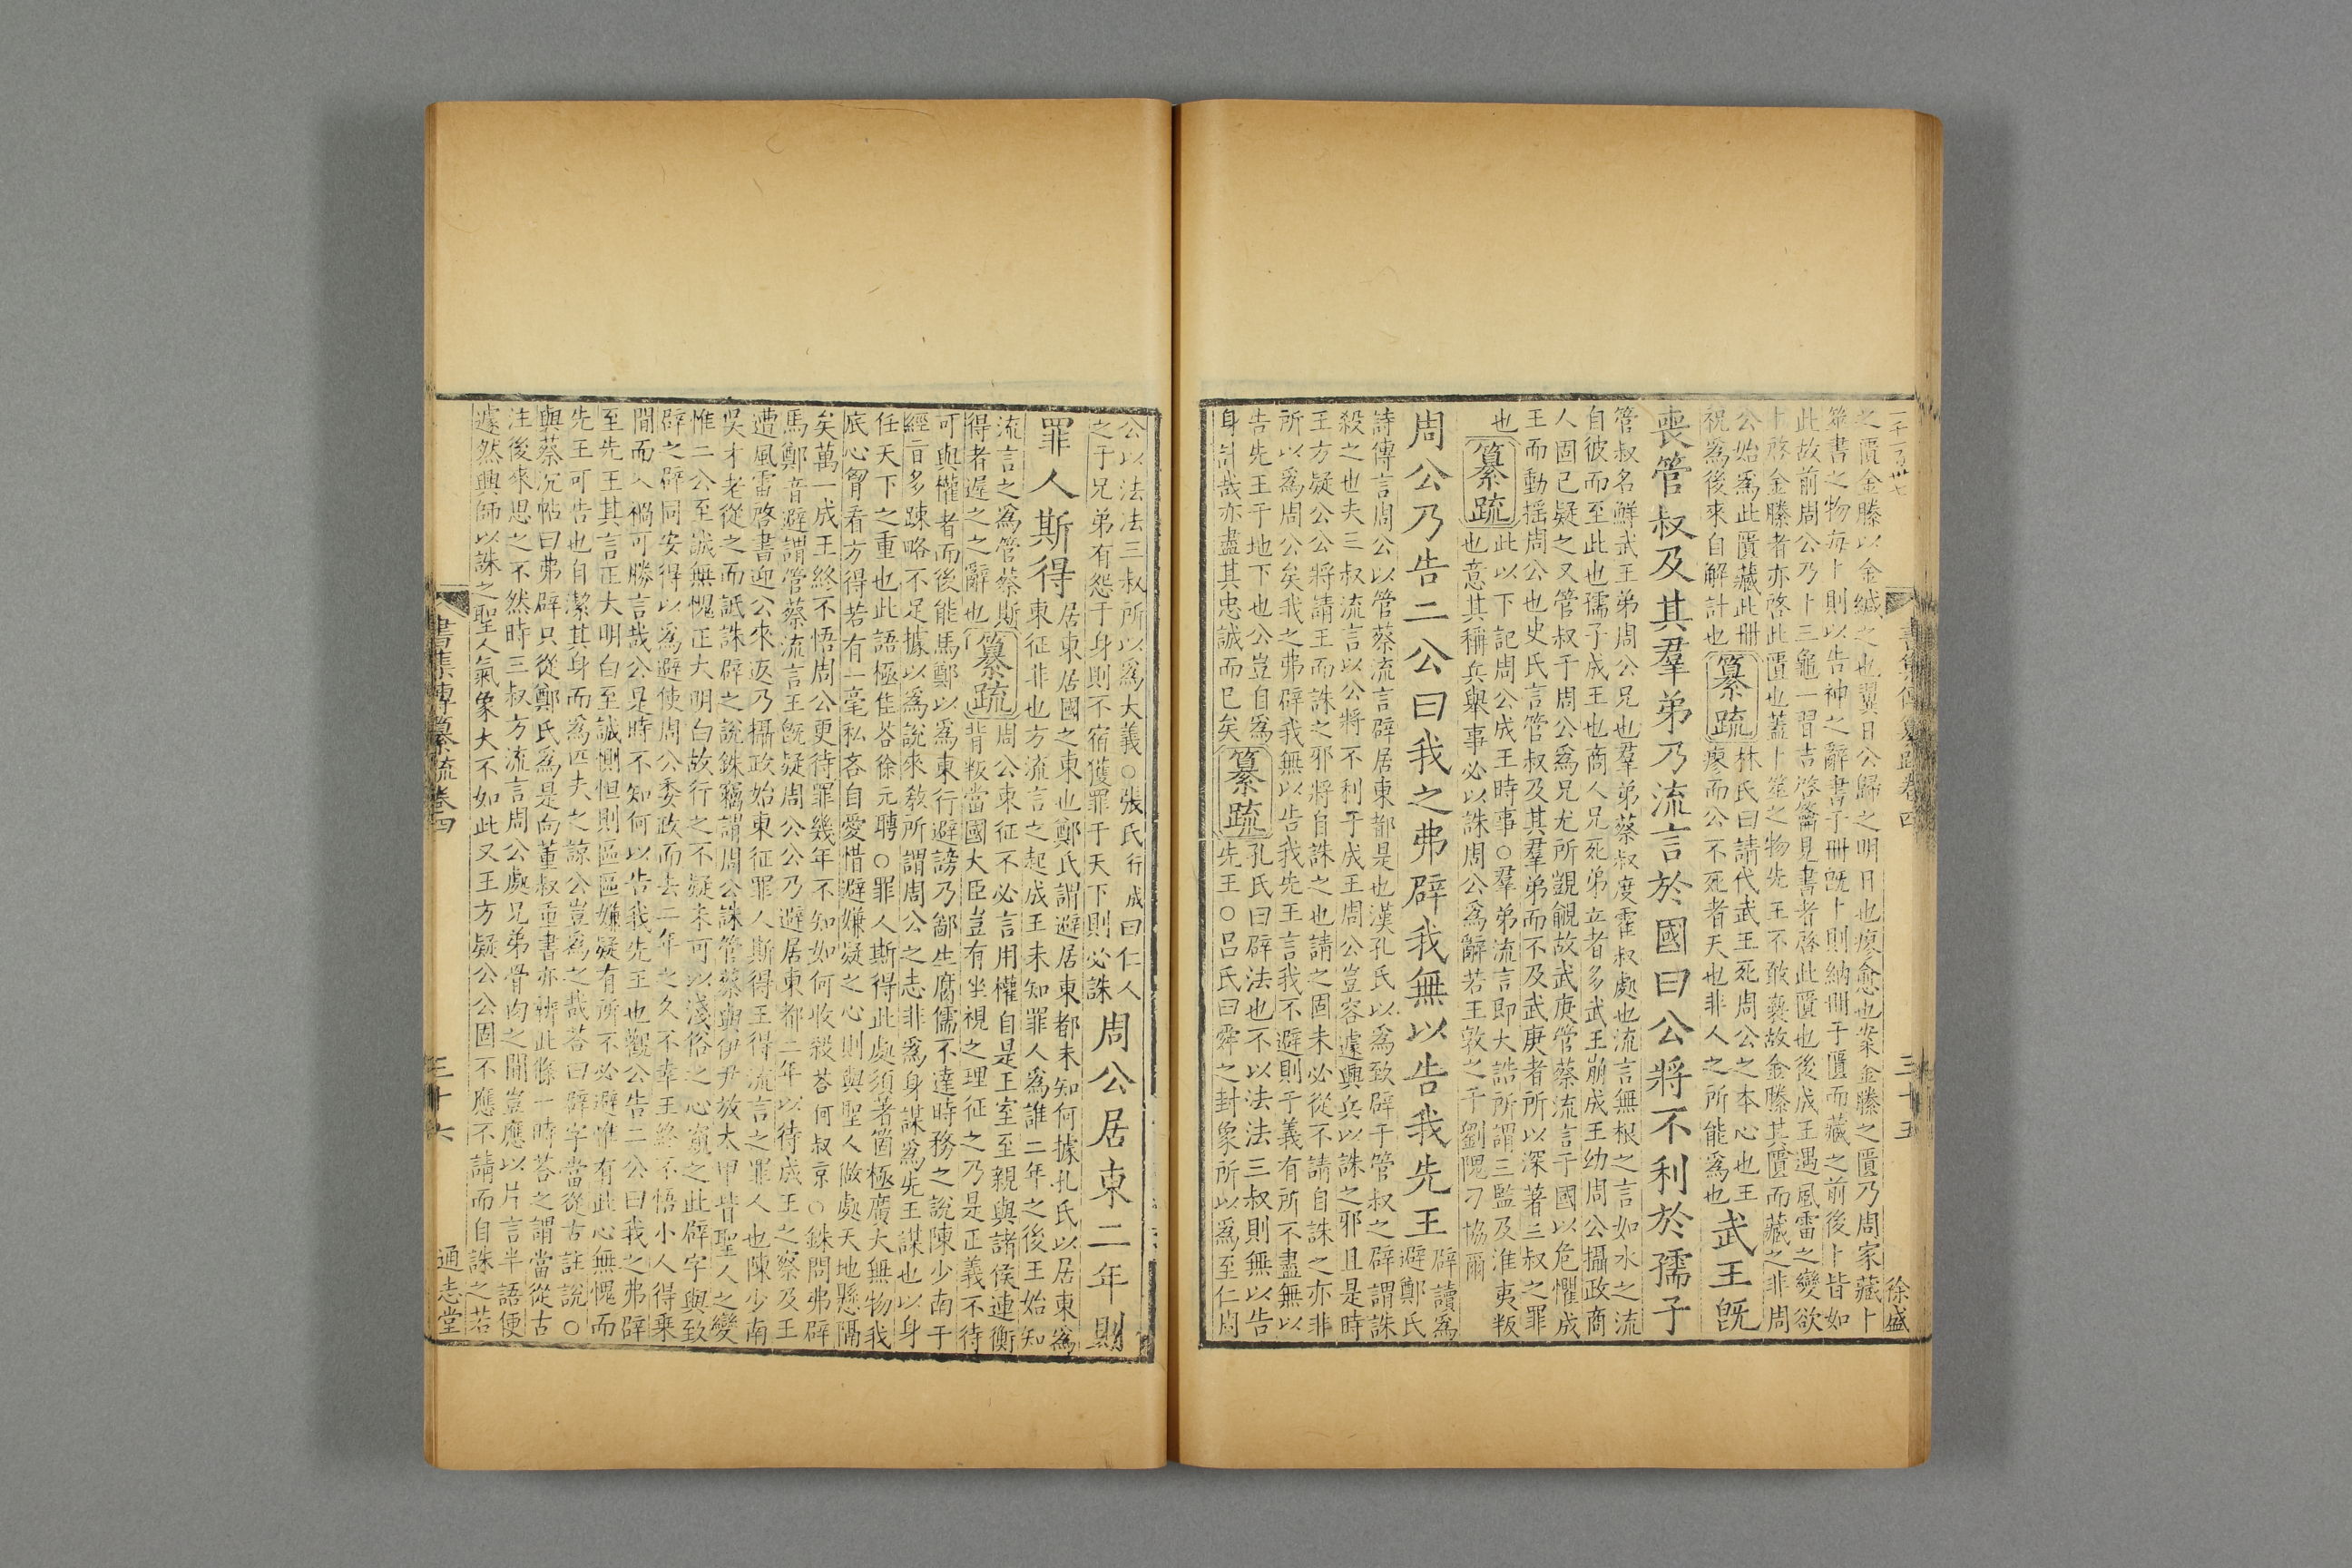 一千一百卅七
書集傳纂疏卷四
三十五
徐盛
之匱金縢以金緘之也翼日公歸之明日也瘳愈也案金縢之匱乃周家藏卜
筮書之物每卜則以告神之辭書于冊既卜則納冊于匱而藏之前後卜皆如
此故前周公乃卜三龜一習吉啓籥見書者啓此匱也後成王遇風雷之變欲
卜啓金縢者亦啓此匱也蓋卜筮之物先王不敢褻故金縢其匱而藏之非周
公始爲此匱藏此冊
祝爲後來自解計也
纂疏
林氏曰請代武王死周公之本心也王
瘳而公不死者天也非人之所能爲也
武王旣
喪管叔及其羣弟乃流言於國曰公將不利於孺子
管叔名鮮武王弟周公兄也羣弟蔡叔度霍叔處也流言無根之言如水之流
自彼而至此也孺子成王也商人兄死弟立者多武王崩成王幼周公攝政商
人固已疑之又管叔于周公爲兄尤所覬覦故武庚管蔡流言于國以危懼成
王而動揺周公也史氏言管叔及其羣弟而不及武庚者所以深著三叔之罪
也
纂疏
此以下記周公成王時事○羣弟流言即大誥所謂三監及淮夷叛
也意其稱兵舉事必以誅周公爲辭若王敦之于劉隗刁協爾
周公乃告二公曰我之弗辟我無以告我先王
辟讀爲
避鄭氏
詩傳言周公以管蔡流言辟居東都是也漢孔氏以爲致辟于管叔之辟謂誅
殺之也夫三叔流言以公將不利于成王周公豈容遽興兵以誅之邪且是時
王方疑公公將請王而誅之邪將自誅之也請之固未必從不請自誅之亦非
所以爲周公矣我之弗辟我無以告我先王言我不避則于義有所不盡無以
告先王于地下也公豈自爲
身計哉亦盡其忠誠而已矣
纂疏
孔氏曰辟法也不以法法三叔則無以告
先王○呂氏曰舜之封象所以爲至仁周
公以法法三叔所以爲大義○張氏行成曰仁人
之于兄弟有怨于身則不宿獲罪于天下則必誅
周公居東二年則
罪人斯得
居東居國之東也鄭氏謂避居東都未知何據孔氏以居東爲
東征非也方流言之起成王未知罪人爲誰二年之後王始知
流言之爲管蔡斯
得者遲之之辭也
纂疏
周公東征不必言用權自是王室至親與諸侯連衡
背叛當國大臣豈有坐視之理征之乃是正義不待
可與權者而後能馬鄭以爲東行避謗乃鄙生腐儒不達時務之說陳少南于
經旨多踈略不足據以爲說來敎所謂周公之志非爲身謀爲先王謀也以身
任天下之重也此語極佳荅徐元聘○罪人斯得此處須著箇極廣大無物我
底心胷看方得若有一毫私吝自愛惜避嫌疑之心則與聖人做處天地懸隔
矣萬一成王終不悟周公更待罪幾年不知如何收殺荅何叔京○銖問弗辟
馬鄭音避謂管蔡流言王旣疑周公公乃避居東都二年以待成王之察及王
遭風雷啓書迎公來返乃攝政始東征罪人斯得王得流言之罪人也陳少南
吳才老從之而詆誅辟之說銖竊謂周公誅管蔡與伊尹放太甲皆聖人之變
惟二公至誠無愧正大明白故行之不疑未可以淺俗之心窺之此辟字與致
辟之辟同安得以爲避使周公委政而去二年之久不幸王終不悟小人得乗
間而入禍可勝言哉公是時不知何以告我先王也觀公告二公曰我之弗辟
至先王其言正大明白至誠惻怛則區區嫌疑有所不必避惟有此心無愧而
先王可告也自潔其身而爲匹夫之諒公豈爲之哉荅曰辟字當從古註說○
與蔡沉帖曰弗辟只從鄭氏爲是向董叔重書亦辨此條一時荅之謂當從古
注後來思之不然時三叔方流言周公處兄弟骨肉之間豈應以片言半語便
遽然興師以誅之聖人氣象大不如此又王方疑公公固不應不請而自誅之若
書集傳纂疏卷四
三十六
通志堂